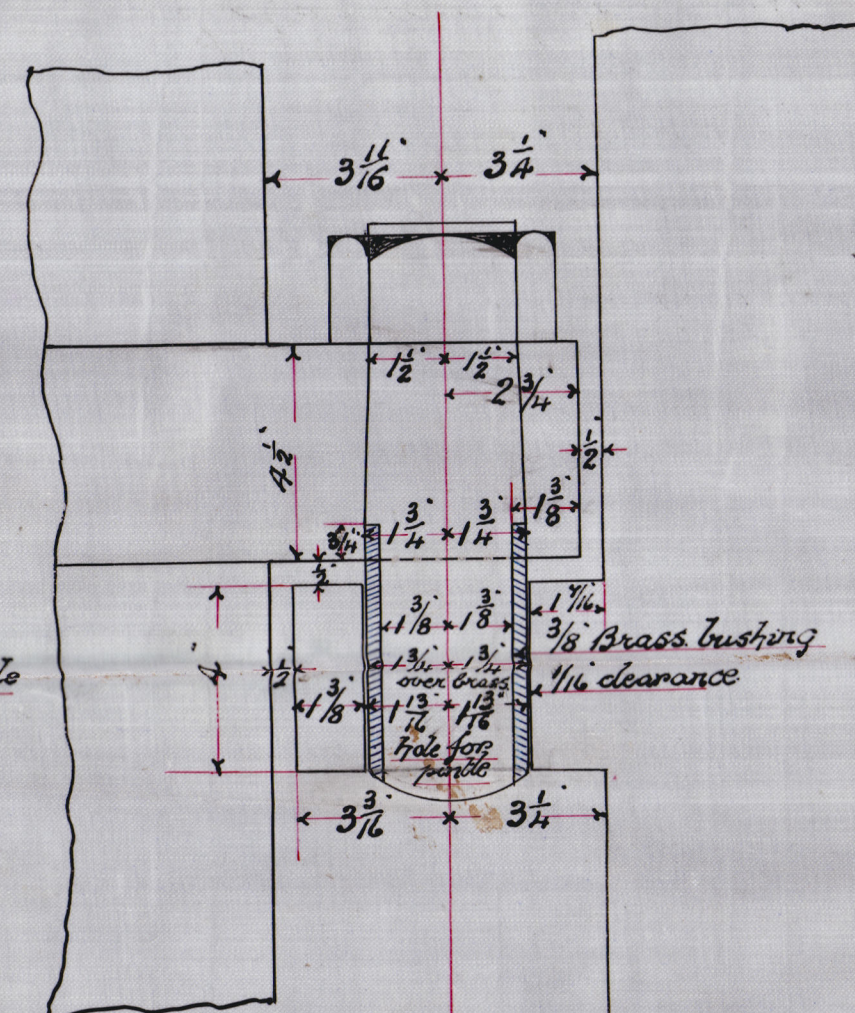 3 11/16" 3 1/4"
1 1/2" 1 1/2"
2 3/4"
4 1/2" 1/2"
1 3/8"
3/4" 1 3/4" 1 3/4"
1/2"
1 7/16"
1 3/8" 1 3/8"
3/8" Brass bushing
4" 1/2" 1 3/4" 1 3/4"
over brass
1/16 clearance
1 3/8" 1 13/16" 1 13/16"
hole for
pintle
3 3/16" 3 1/4"